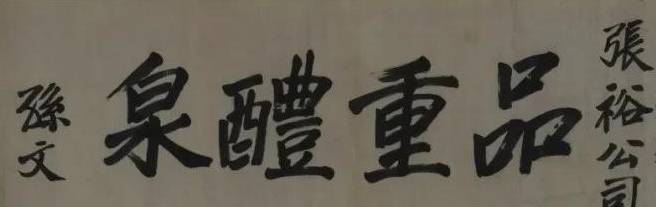 張裕公司
品重醴泉
孫文